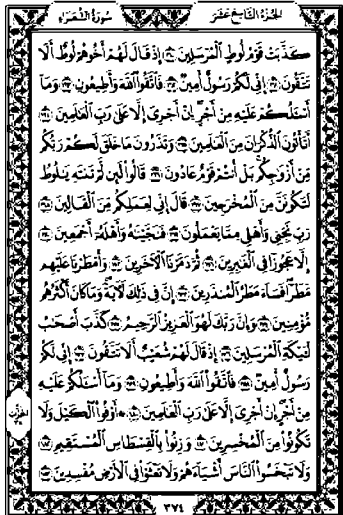 الجزء التاسع عشر
سورة الشعراء
كَذَّبَتْ قَوْمُ لُوطٍ الْمُرْسَلِينَ ١٦٠ إِذْ قَالَ لَهُمْ أَخُوهُمْ لُوطٌ أَلَا
تَتَّقُونَ ١٦١ إِنِّي لَكُمْ رَسُولٌ أَمِينٌ ١٦٢ فَاتَّقُوا اللَّهَ وَأَطِيعُونِ ١٦٣ وَمَا
أَسْأَلُكُمْ عَلَيْهِ مِنْ أَجْرٍ إِنْ أَجْرِيَ إِلَّا عَلَى رَبِّ الْعَالَمِينَ ١٦٤
أَتَأْتُونَ الذُّكْرَانَ مِنَ الْعَالَمِينَ ١٦٥ وَتَذَرُونَ مَا خَلَقَ لَكُمْ رَبُّكُمْ
مِنْ أَزْوَاجِكُمْ بَلْ أَنْتُمْ قَوْمٌ عَادُونَ ١٦٦ قَالُوا لَئِنْ لَمْ تَنْتَهِ يَا لُوطُ
لَتَكُونَنَّ مِنَ الْمُخْرَجِينَ ١٦٧ قَالَ إِنِّي لِعَمَلِكُمْ مِنَ الْقَالِينَ ١٦٨
رَبِّ نَجِّنِي وَأَهْلِي مِمَّا يَعْمَلُونَ ١٦٩ فَنَجَّيْنَاهُ وَأَهْلَهُ أَجْمَعِينَ ١٧٠
إِلَّا عَجُوزًا فِي الْغَابِرِينَ ١٧١ ثُمَّ دَمَّرْنَا الْآخَرِينَ ١٧٢ وَأَمْطَرْنَا عَلَيْهِمْ
مَطَرًا فَسَاءَ مَطَرُ الْمُنْذَرِينَ ١٧٣ إِنَّ فِي ذَلِكَ لَآيَةً وَمَا كَانَ أَكْثَرُهُمْ
مُؤْمِنِينَ ١٧٤ وَإِنَّ رَبَّكَ لَهُوَ الْعَزِيزُ الرَّحِيمُ ١٧٥ كَذَّبَ أَصْحَابُ
لْـَٔيْكَةِ الْمُرْسَلِينَ ١٧٦ إِذْ قَالَ لَهُمْ شُعَيْبٌ أَلَا تَتَّقُونَ ١٧٧ إِنِّي لَكُمْ
رَسُولٌ أَمِينٌ ١٧٨ فَاتَّقُوا اللَّهَ وَأَطِيعُونِ ١٧٩ وَمَا أَسْأَلُكُمْ عَلَيْهِ
مِنْ أَجْرٍ إِنْ أَجْرِيَ إِلَّا عَلَى رَبِّ الْعَالَمِينَ ١٨٠ ۞ أَوْفُوا الْكَيْلَ وَلَا
تَكُونُوا مِنَ الْمُخْسِرِينَ ١٨١ وَزِنُوا بِالْقِسْطَاسِ الْمُسْتَقِيمِ ١٨٢
وَلَا تَبْخَسُوا النَّاسَ أَشْيَاءَهُمْ وَلَا تَعْثَوْا فِي الْأَرْضِ مُفْسِدِينَ ١٨٣
٣٧٤